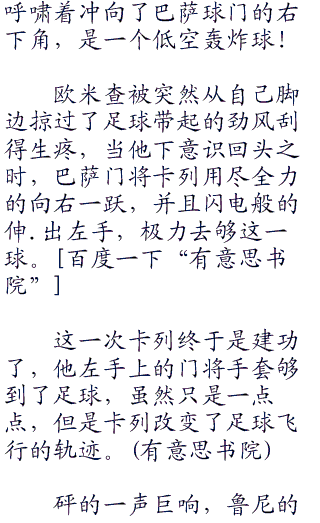 呼啸着冲向了巴萨球门的右
下角，是一个低空轰炸球！
欧米查被突然从自己脚
边掠过了足球带起的劲风刮
得生疼，当他下意识回头之
时，巴萨门将卡列用尽全力
的向右一跃，并且闪电般的
伸.出左手，极力去够这一
球。[百度一下“有意思书
院”]
这一次卡列终于是建功
了，他左手上的门将手套够
到了足球，虽然只是一点
点，但是卡列改变了足球飞
行的轨迹。(有意思书院)
砰的一声巨响，鲁尼的